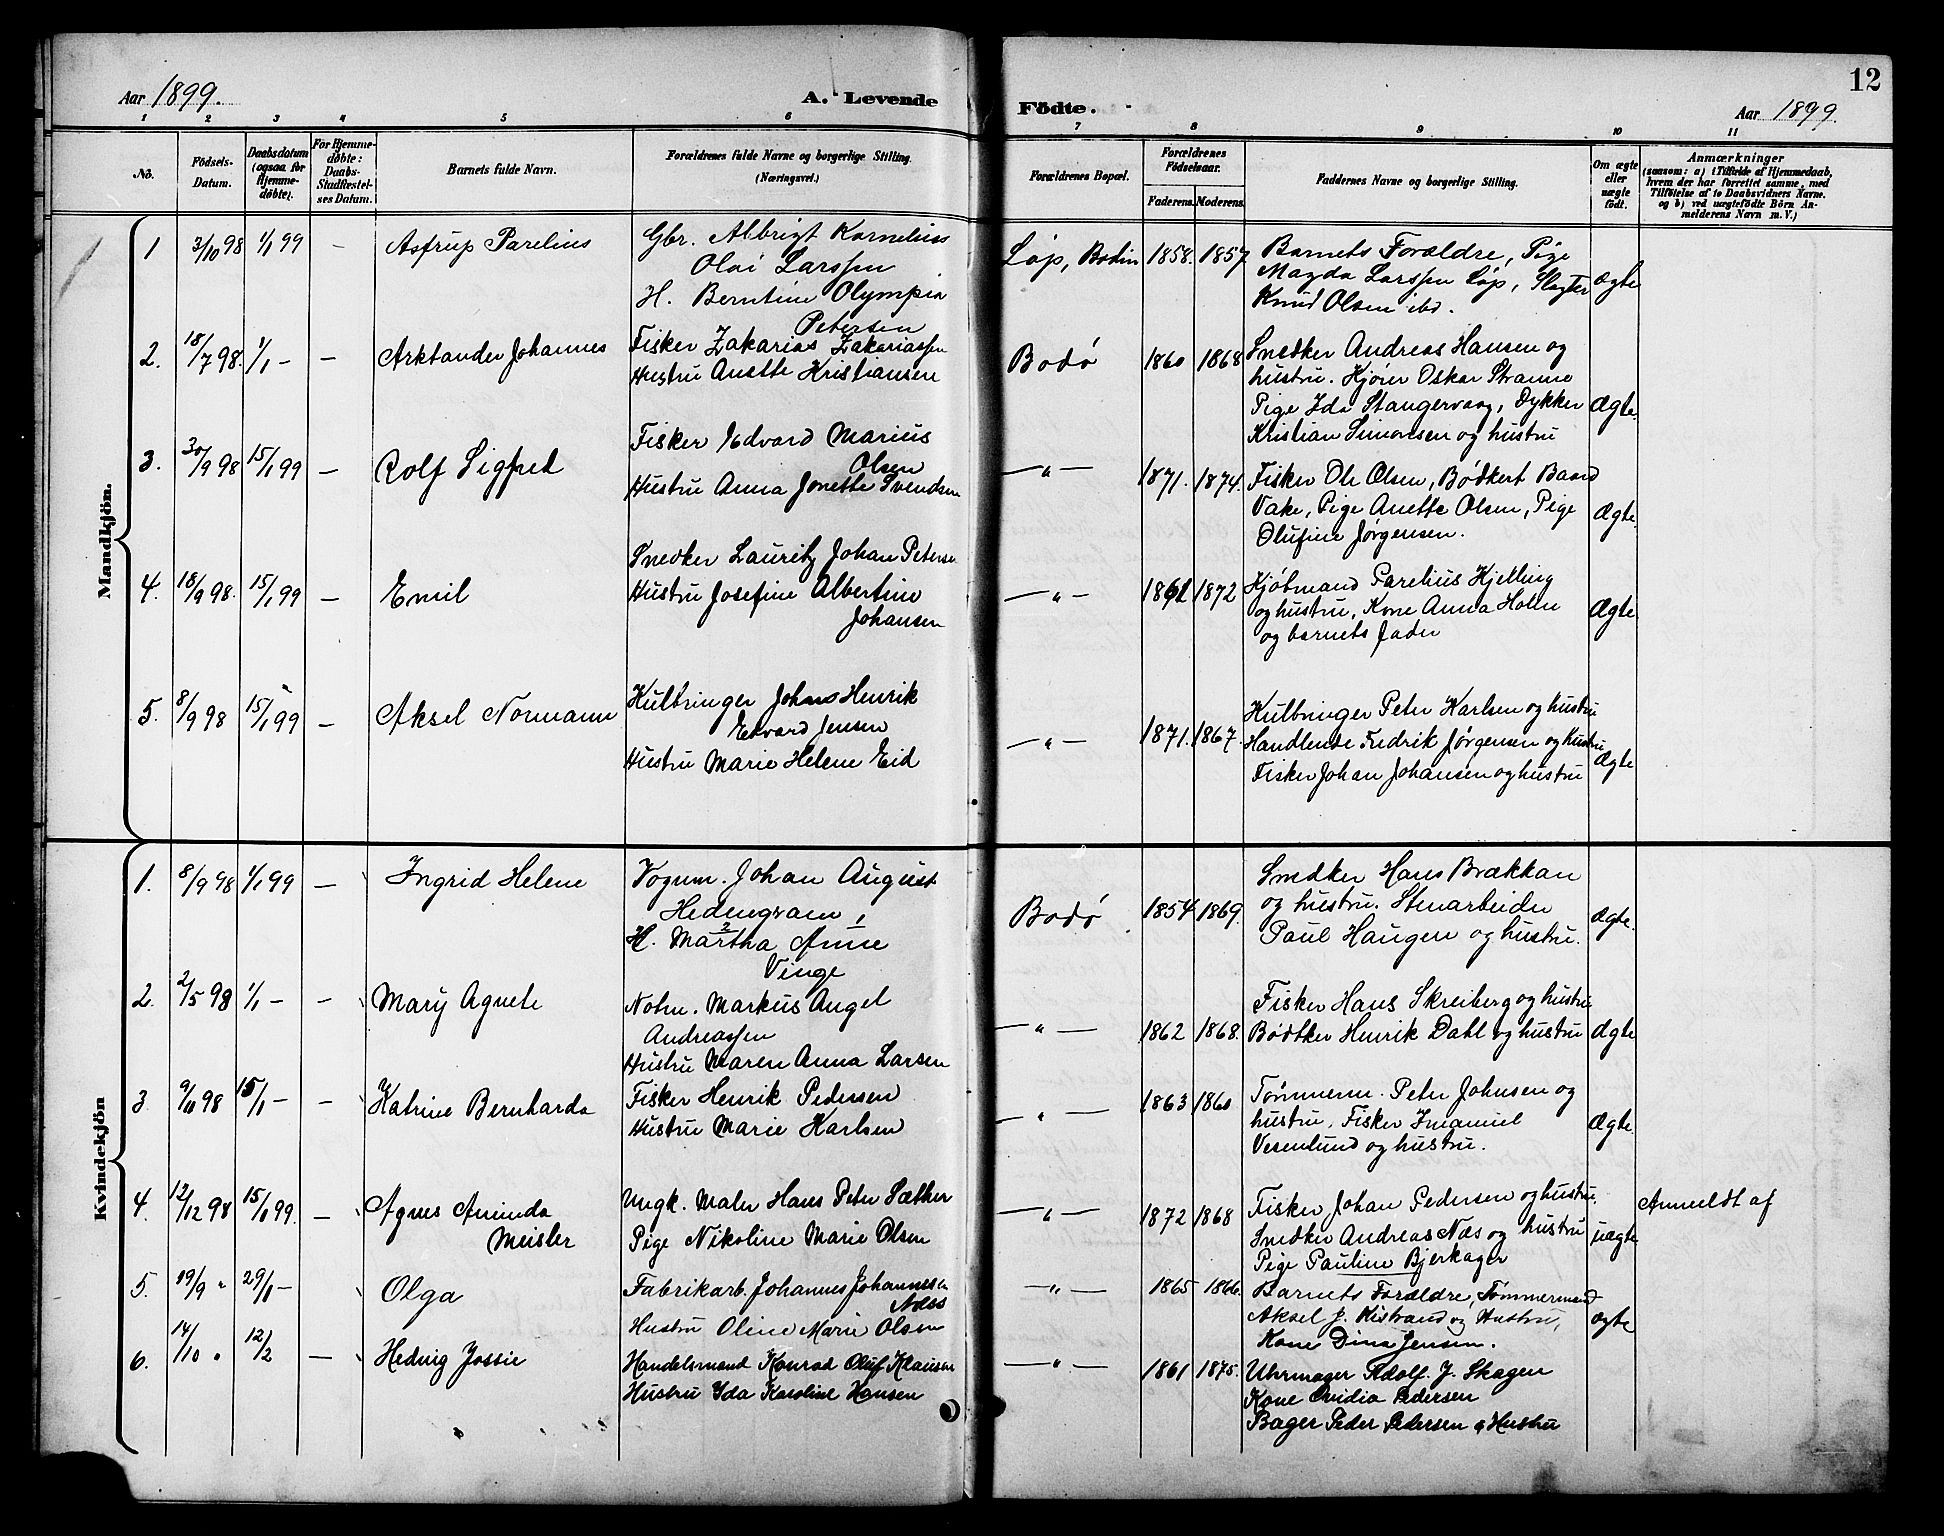 12
Aar 1899. A. Levende Födte. Aar 1899.
1 2 3 4 5 6 7 8 9 10 11
No. Födsels-Datum. Daabsdatum (ogsaa for Hjemmedøbte). For Hjemmedøbte: Daabs-Stadfæstelses Datum. Barnets fulde Navn. Forældrenes fulde Navne og borgerlige Stilling. (Næringsvei.) Forældrenes Bopæl. Forældrenes Födselsaar. Faderens. Moderens. Faddernes Navne og borgerlige Stilling. Om ægte eller uægte født. Anmærkninger (saasom: a) i Tilfælde af Hjemmedaab, hvem der har forrettet samme, med Tilføielse af to Daabsvidners Navne. og b) ved uægtefødte Börn Anmelderens Navn m. V.)
Mandkjön.
1 3/10 98 1/1 99 – Astrup Parelius Gbr. Albrigt Kornelius Løp, Bodin 1858. 1857 Barnets Forældre, Pige ægte
Olai Larssen Magda Larssen Løp, Slagter
H. Berntine Olympia Knud Olsen ibd.
Petersen
2. 18/7 98. 1/1 – – Arktander Johannes Fisker Zakarias Zakariassen Bodø 1860 1868 Snedker Andreas Hansen og
Hustru Anette Kristiansen hustru. Kjører Oskar Stranne
Pige Ida Stangervaag, Dykker Ægte
Kristian Simonsen og hustru
3. 30/9 98 15/1 99 – Rolf Sigfred Fisker Edvard Marius – " – 1871. 1874. Fisker Ole Olsen, Bødkert Baard
Olsen Vake, Pige Anette Olsen, Pige Ægte
Hustru Anna Jonette Svendsen Olufine Jørgensen.
4. 18/9 98. 15/1 99 – Emil Snedker Lauritz Johan Petersen – " – 1861 1872 Kjøbmand Parelius Kjelling
Hustru Josefine Albertine og hustru, Kone Anna Holm Ægte
Johansen og barnets fader
5. 8/9 98 15/1 99 – Aksel Normann Kulbringer Johns Henrik – " – 1871. 1867. Kulbringer Peter Karlsen og hustru
Edvard Jensen Handlende Fredrik Jørgensen og hustru Ægte
Hustru Marie Helene Eid Fisker Johan Johansen og hustru
Kvindekjön
1. 8/9 98 1/1 99 – Ingrid Helene Vognm. Johan August Bodø 1854. 1869. Snedker Hans Brækkan
Hedengram, og hustru. Stenarbeider ægte
H. Martha Anne Paul Haugen og hustru.
Vinge
2. 2/5 98 1/1 – – Mary Agnete Notm. Markus Angel – " – 1862 1868. Fisker Hans Skreiberg og hustru
Andreassen Bødtker Henrik Dahl og hustru ægte
Hustru Maren Anna Larsen
3 9/11 98 15/1 – – Katrine Bernharda Fisker Henrik Pedersen – " – 1863 1860 Tømmerm. Peter Johnsen og
Hustru Marie Karlsen hustru, Fisker Imanuel Ægte
Vesenlund og hustru.
4. 12/12 98 15/1 99. – Agnes Aminda Ungk. Maler Hans Peter Sæther – " – 1872 1868 Fisker Johan Pedersen og hustru. Anmeldt af
Meisler Pige Nikoline Marie Olsen Snedker Andreas Næs og hustru uægte
Pige Pauline Bjerkager
5. 19/9 " 29/1 – Olga Fabrikarb. Johannes Johannesen – " – 1865 1866. Barnets Forældre, Tømmermand
Næss Aksel J. Kistrand og Hustru, ægte
Hustru Oline Marie Olsen Kone Dina Jensen.
6. 14/10 " 12/2 – Hedvig Jossie Handelsmand Konrad Oluf Klausen – " – 1861 1875. Uhrmager Adolf J. Skagen
Hustru Ida Karoline Hansen Kone Ovidia Pedersen
Bager Peder Pedersen & Hustru